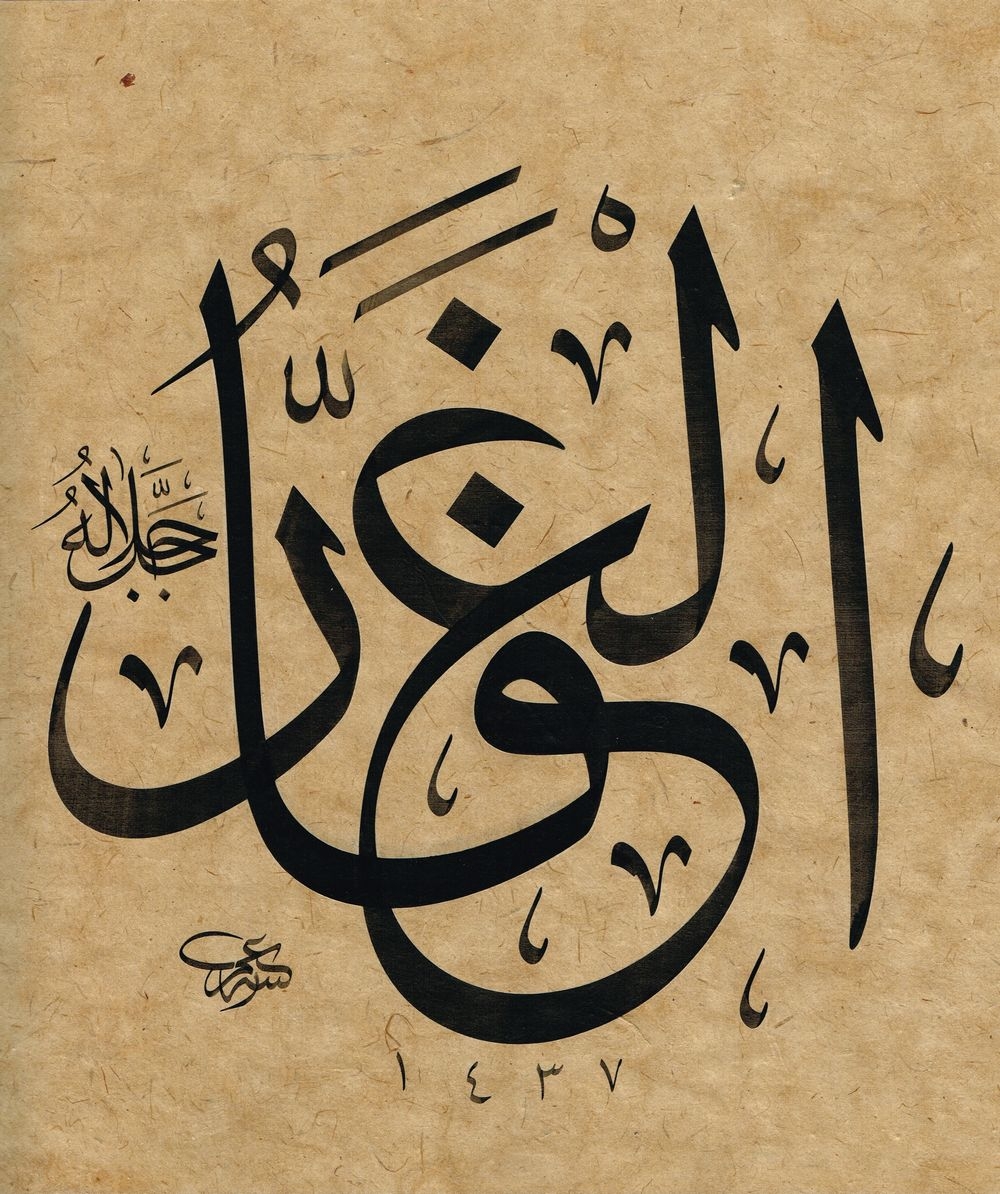 الْغَفَّارُ
جَلَّ جَلَالُهُ
١٤٣٧